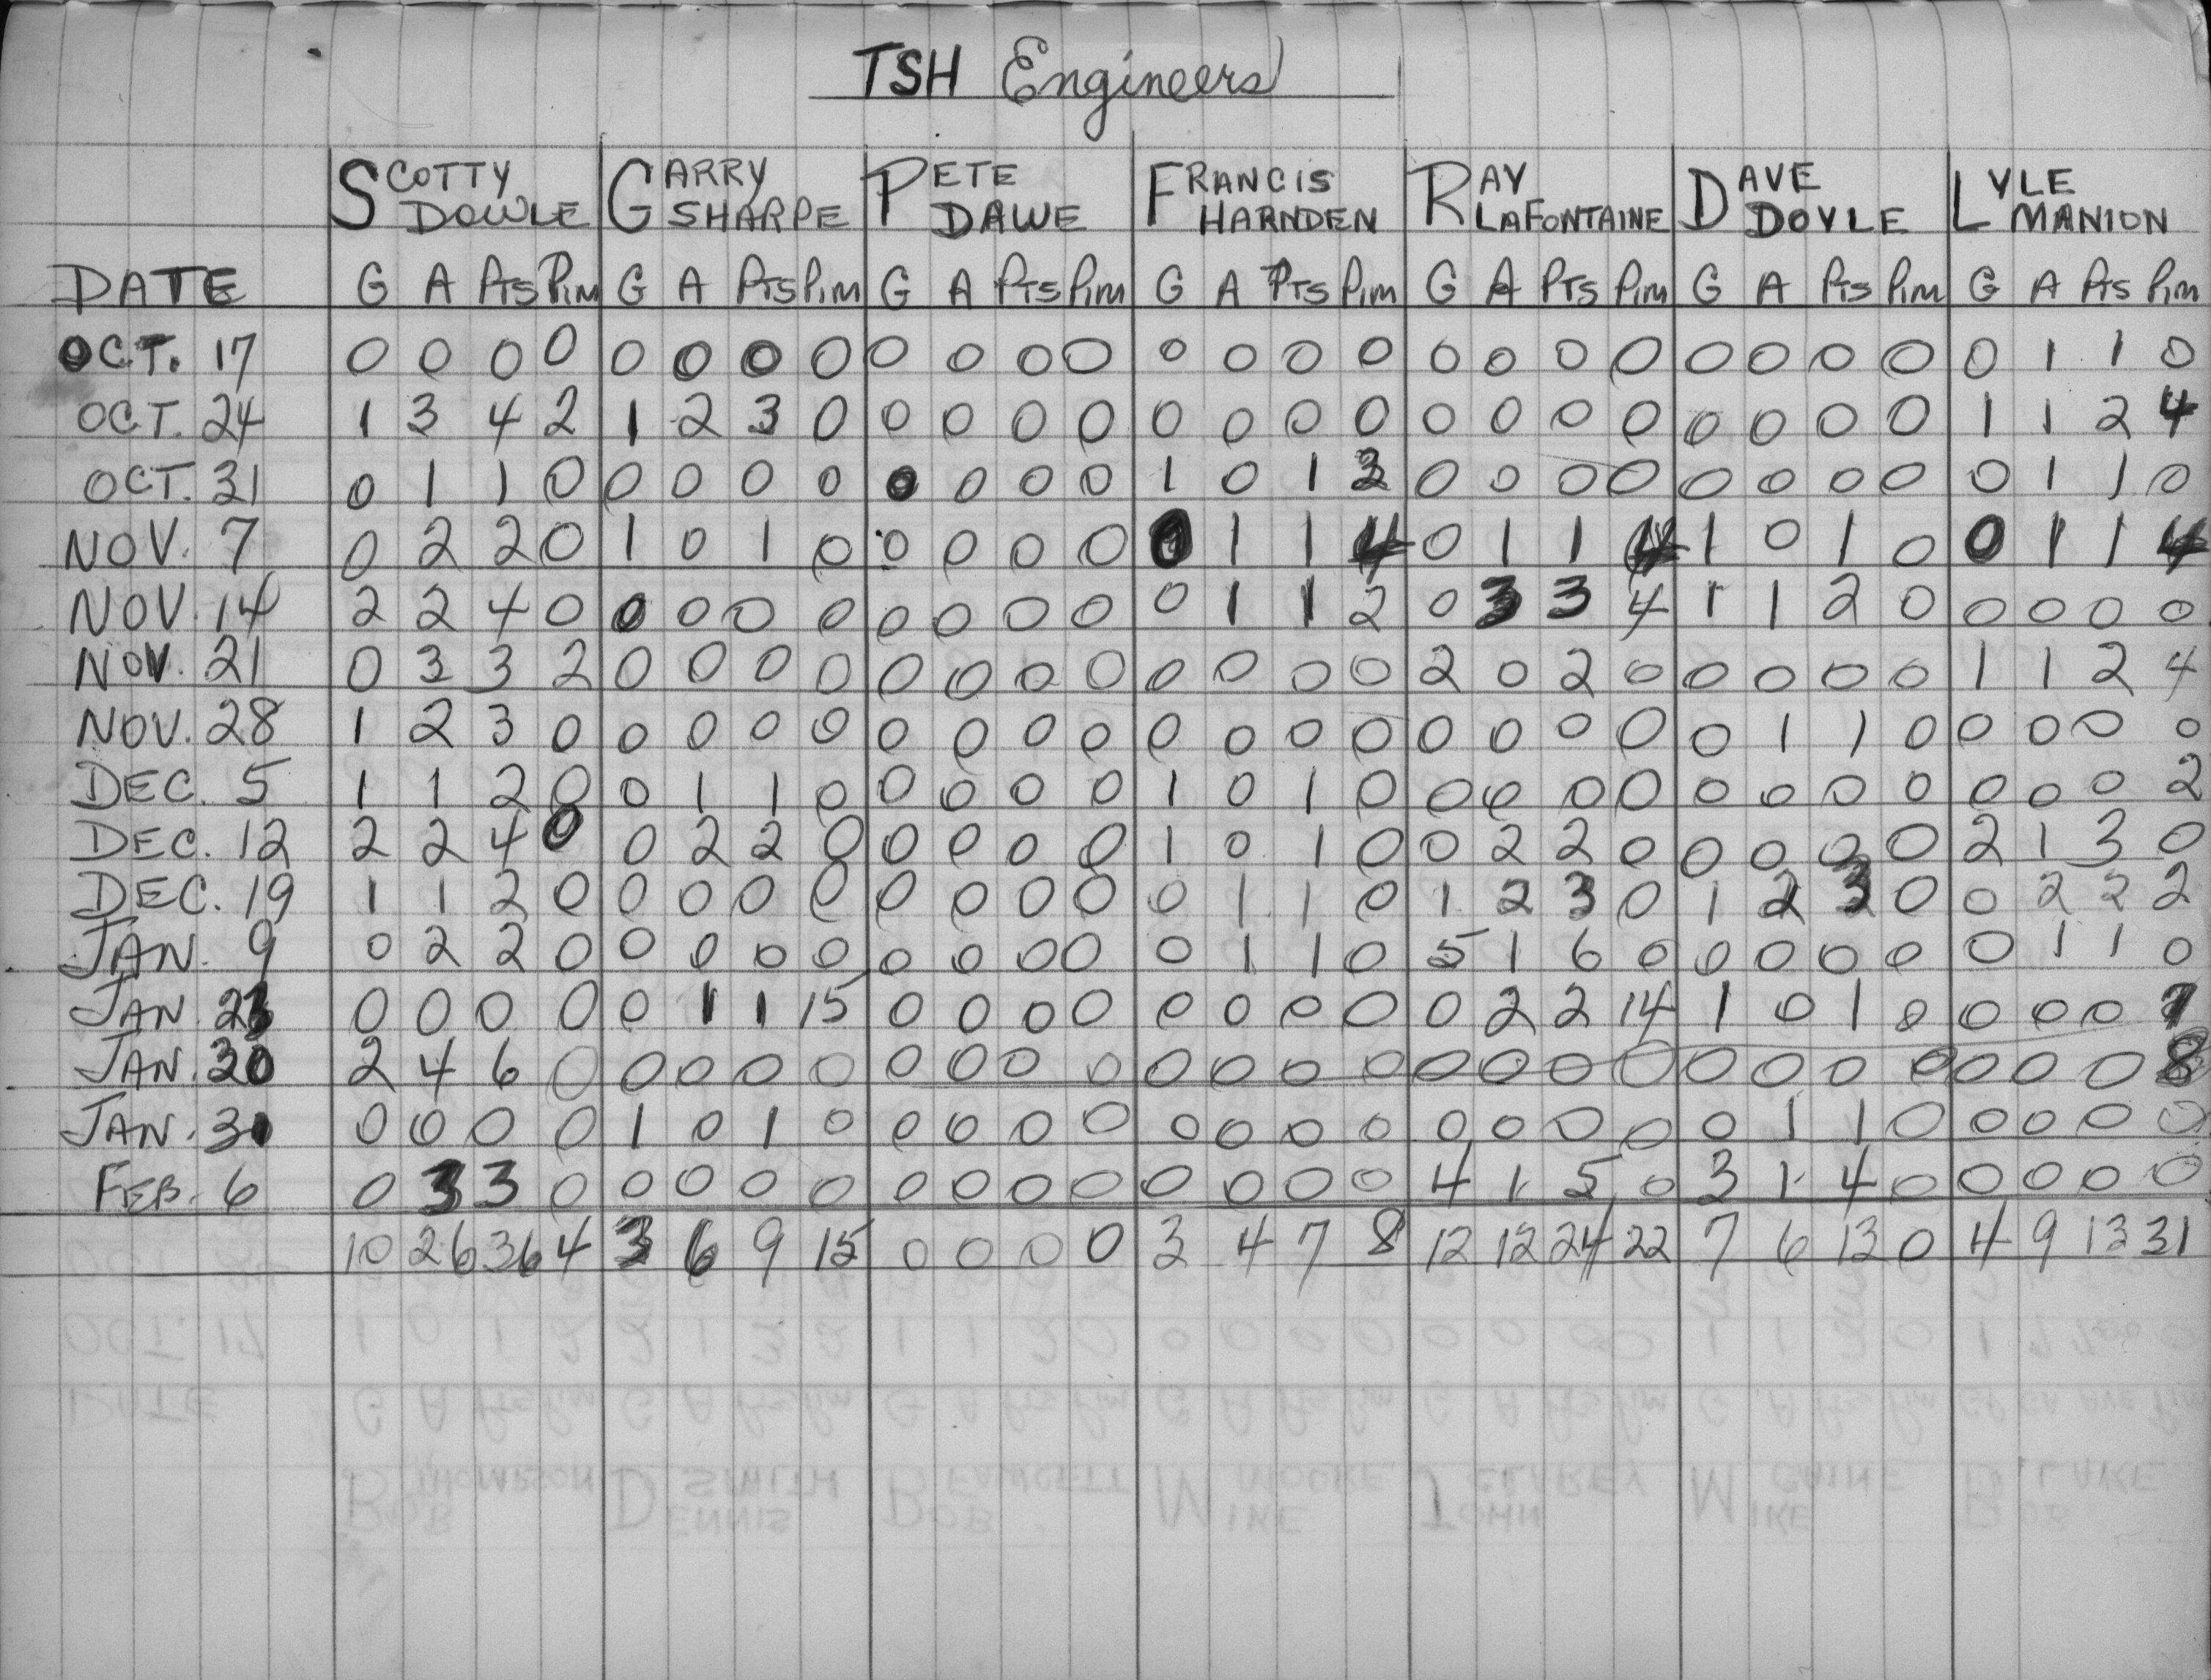 TSH Engineers
SCOTTY GARRY PETE FRANCIS RAY DAVE LYLE
DOWLE SHARPE DAWE HARNDEN LAFONTAINE DOYLE MANION
DATE G A PTS PIM G A PTS PIM G A PTS PIM G A PTS PIM G A PTS PIM G A PTS PIM G A PTS PIM
OCT. 17 0 0 0 0 0 0 0 0 0 0 0 0 0 0 0 0 0 0 0 0 0 0 0 0 0 1 1 0
OCT. 24 1 3 4 2 1 2 3 0 0 0 0 0 0 0 0 0 0 0 0 0 0 0 0 0 1 1 2 4
OCT. 31 0 1 1 0 0 0 0 0 0 0 0 0 1 0 1 2 0 0 0 0 0 0 0 0 0 1 1 0
NOV. 7 0 2 2 0 1 0 1 0 0 0 0 0 0 1 1 4 0 1 1 4 1 0 1 0 0 1 1 4
NOV. 14 2 2 4 0 0 0 0 0 0 0 0 0 0 1 1 2 0 3 3 4 1 1 2 0 0 0 0 0
NOV. 21 0 3 3 2 0 0 0 0 0 0 0 0 0 0 0 0 2 0 2 0 0 0 0 0 1 1 2 4
NOV. 28 1 2 3 0 0 0 0 0 0 0 0 0 0 0 0 0 0 0 0 0 0 1 1 0 0 0 0 0
DEC. 5 1 1 2 0 0 1 1 0 0 0 0 0 1 0 1 0 0 0 0 0 0 0 0 0 0 0 0 2
DEC. 12 2 2 4 0 0 2 2 0 0 0 0 0 1 0 1 0 0 2 2 0 0 0 0 0 2 1 3 0
DEC. 19 1 1 2 0 0 0 0 0 0 0 0 0 0 1 1 0 1 2 3 0 1 2 3 0 0 2 2 2
JAN. 9 0 2 2 0 0 0 0 0 0 0 0 0 0 1 1 0 5 1 6 0 0 0 0 0 0 1 1 0
JAN. 23 0 0 0 0 0 1 1 15 0 0 0 0 0 0 0 0 0 2 2 14 1 0 1 0 0 0 0 7
JAN. 30 2 4 6 0 0 0 0 0 0 0 0 0 0 0 0 0 0 0 0 0 0 0 0 0 0 0 0 8
JAN. 31 0 0 0 0 1 0 1 0 0 0 0 0 0 0 0 0 0 0 0 0 0 1 1 0 0 0 0 0
FEB. 6 0 3 3 0 0 0 0 0 0 0 0 0 0 0 0 0 4 1 5 0 3 1 4 0 0 0 0 0
10 26 36 4 3 6 9 15 0 0 0 0 3 4 7 8 12 12 24 22 7 6 13 0 4 9 13 31